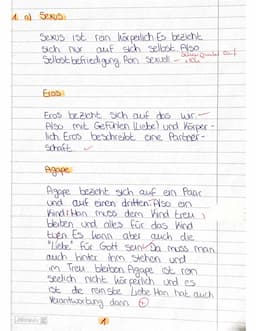 1. a) Sexus
Sexus ist rein körperlich. Es bezieht
sich nur auf sich selbst. Also
Selbstbefriedigung. Rein sexuell
Eros
Eros bezieht sich auf das Wir.
Also mit Gefühlen (Liebe) und Körper-
lich. Eros beschreibt eine Partner-
schaft.
Agape
Agape bezieht sich auf ein Paar
und auf einen dritten. Also ein
Kind. Man muss dem Kind treu
bleiben und alles für das Kind
tuen. Es kann aber auch die
"Liebe" für Gott sein. Da muss man
auch hinter ihm stehen und
im Treu bleiben. Agape ist rein
seelich nicht körperlich und es
ist die reinste Liebe. Man hat auch
Verantwortung dann.
1